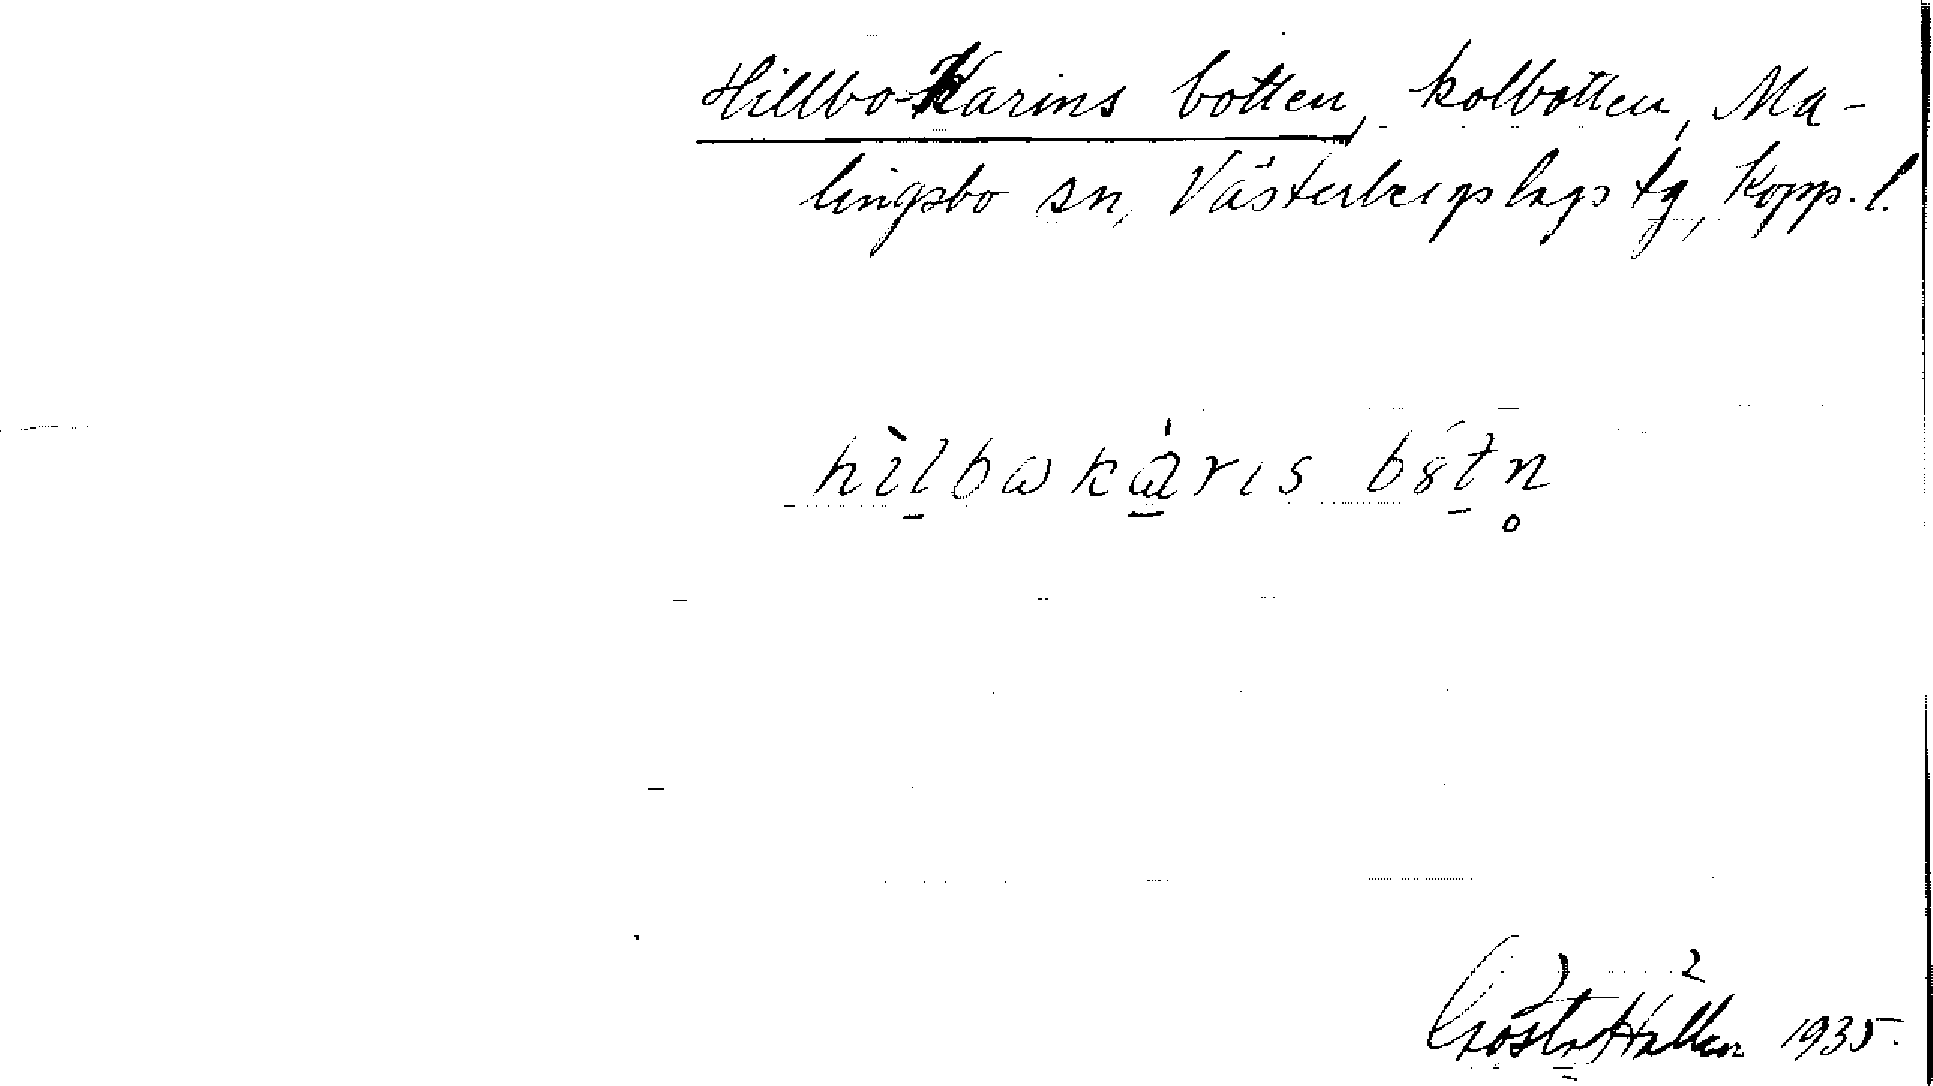 Hillbo-Karins botten, kolbotten, Ma-
lingsbo sn, Västerbergslags tg, Kopp. l.
hìlbωkáris bátn̥
Gösta Hallen 1935.